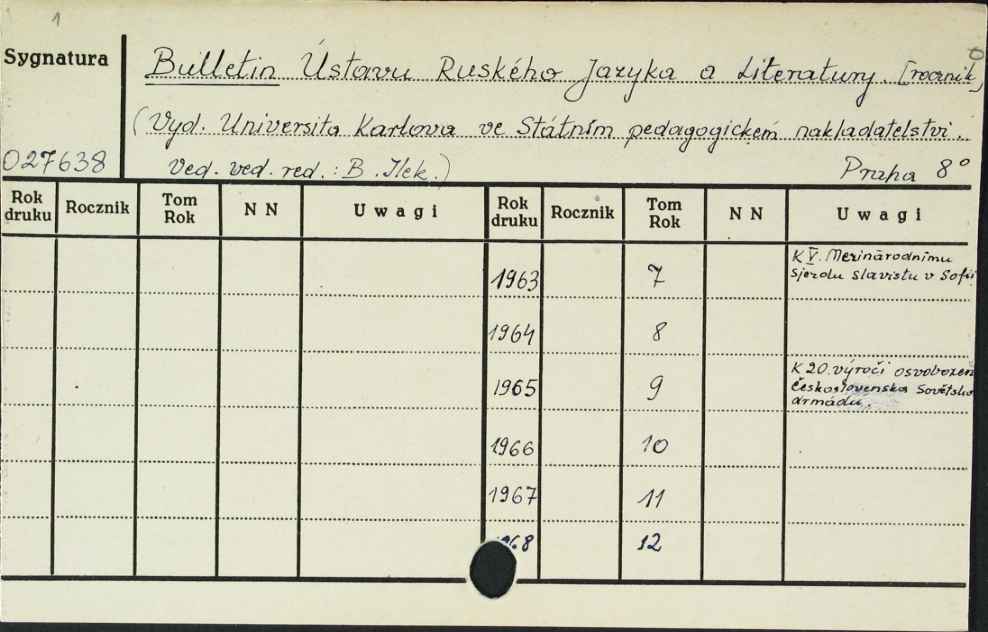 1
Sygnatura
Bulletin Ústavu Ruského Jazyka a Literatury. [rocznik]
(Vyd. Universita Karlova ve Státním pedagogickém nakladatelství.
027638 Ved. ved. red.: B. Ilek.) Praha 8°
Rok druku Rocznik Tom Rok N N Uwagi Rok druku Rocznik Tom Rok N N Uwagi
K V. Mezinárodnímu
1963 7 sjezdu slavistu v Sofii
1964 8
K 20. výročí osvobození
1965 9 Československa Sovětskou
armádu.
1966 10
1967 11
1968 12